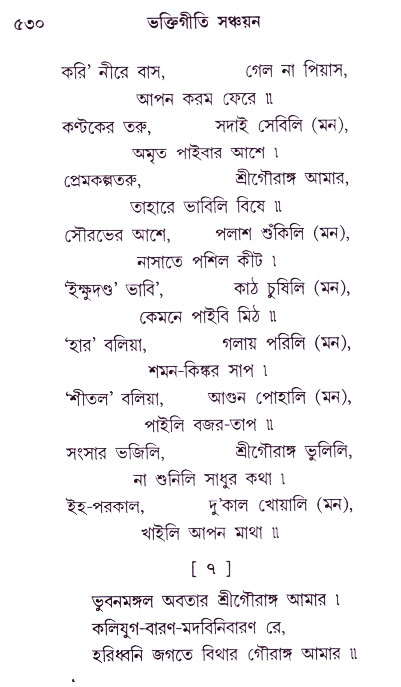 ৫৩০ ভক্তিগীতি সঞ্চয়ন
করি’ নীরে বাস, গেল না পিয়াস,
আপন করম ফেরে ॥
কণ্টকের তরু, সদাই সেবিলি (মন),
অমৃত পাইবার আশে ।
প্রেমকল্পতরু, শ্রীগৌরাঙ্গ আমার,
তাহারে ভাবিলি বিষে ॥
সৌরভের আশে, পলাশ শুঁকিলি (মন),
নাসাতে পশিল কীট ।
‘ইক্ষুদণ্ড’ ভাবি’, কাঠ চুষিলি (মন),
কেমনে পাইবি মিঠ ॥
‘হার’ বলিয়া, গলায় পরিলি (মন),
শমন-কিঙ্কর সাপ ।
‘শীতল’ বলিয়া, আগুন পোহালি (মন),
পাইলি বজর-তাপ ॥
সংসার ভজিলি, শ্রীগৌরাঙ্গ ভুলিলি,
না শুনিলি সাধুর কথা ।
ইহ-পরকাল, দু’কাল খোয়ালি (মন),
খাইলি আপন মাথা ॥
[ ৭ ]
ভুবনমঙ্গল অবতার শ্রীগৌরাঙ্গ আমার ।
কলিযুগ-বারণ-মদবিনিবারণ রে,
হরিধ্বনি জগতে বিথার গৌরাঙ্গ আমার ॥